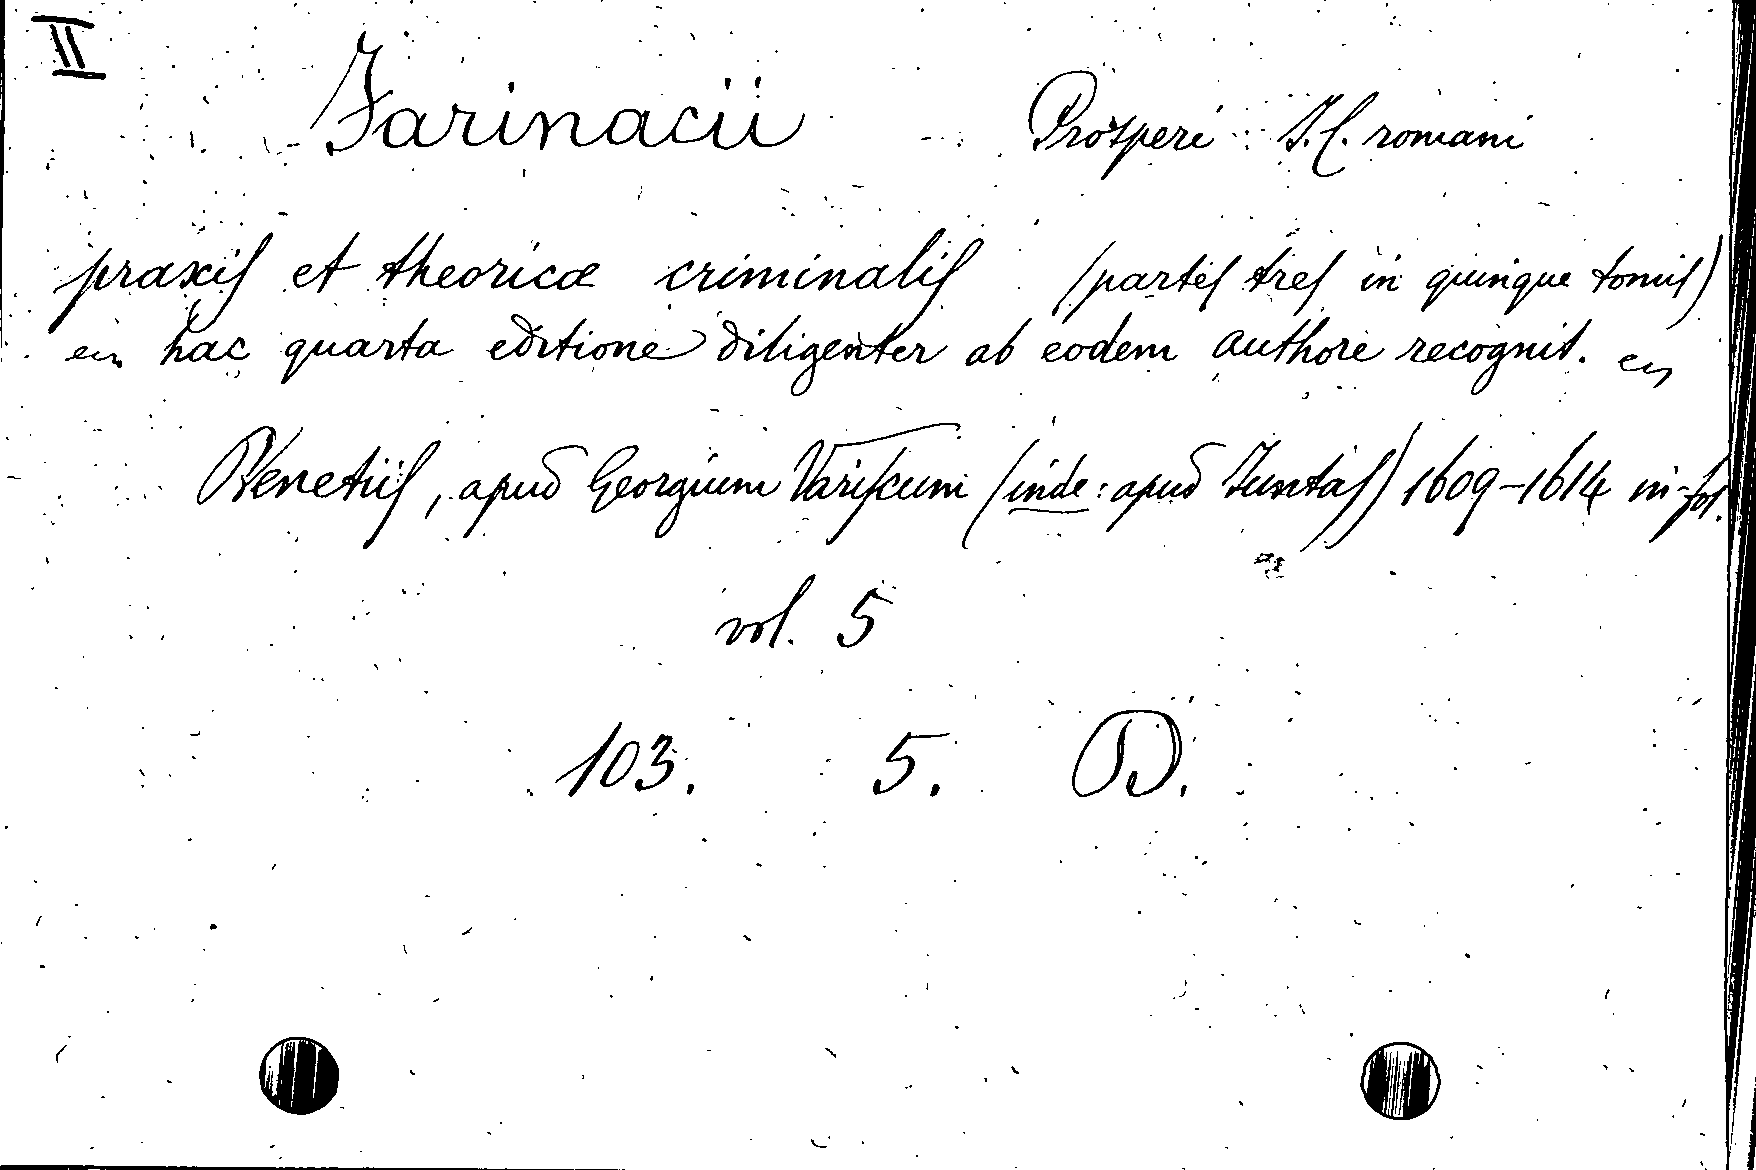 II
Farinacii Prosperi J.C. romani
praxis et theoricæ criminalis (partes tres in quinque tomis)
en hac quarta editione diligenter ab eodem authore recognit. en
Venetiis, apud Georgium Variscum (inde: apud Juntas) 1609-1614 in-fol.
vol. 5
103. 5. D.